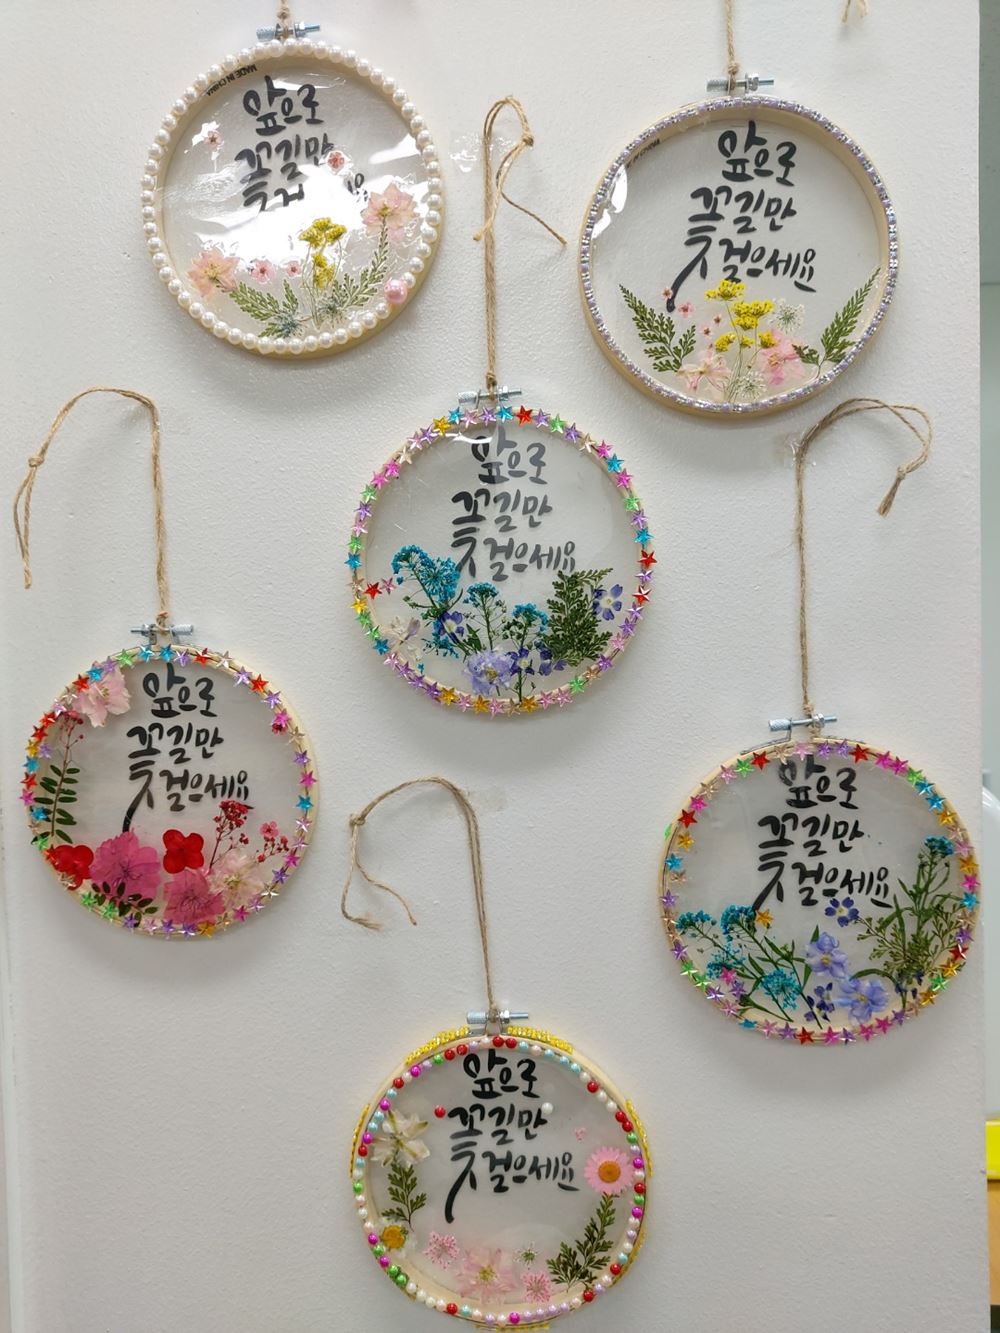 MADE IN CHINA
앞으로
꽃길만
앞으로
꽃길만
걸으세요
앞으로
꽃길만
걸으세요
앞으로
꽃길만
걸으세요
앞으로
꽃길만
걸으세요
앞으로
꽃길만
걸으세요